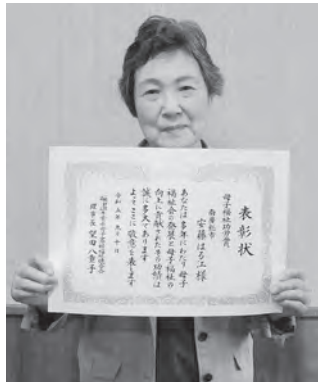 表彰状
母子福祉功労賞
南房総市
安藤はる江様
あなたは多年にわたり母子
福祉会の発展と母子福祉の
向上に貢献されたその功績は
誠に多大であります
よってここに敬意を表します
令和五年九月十日
理事長 望田八重子